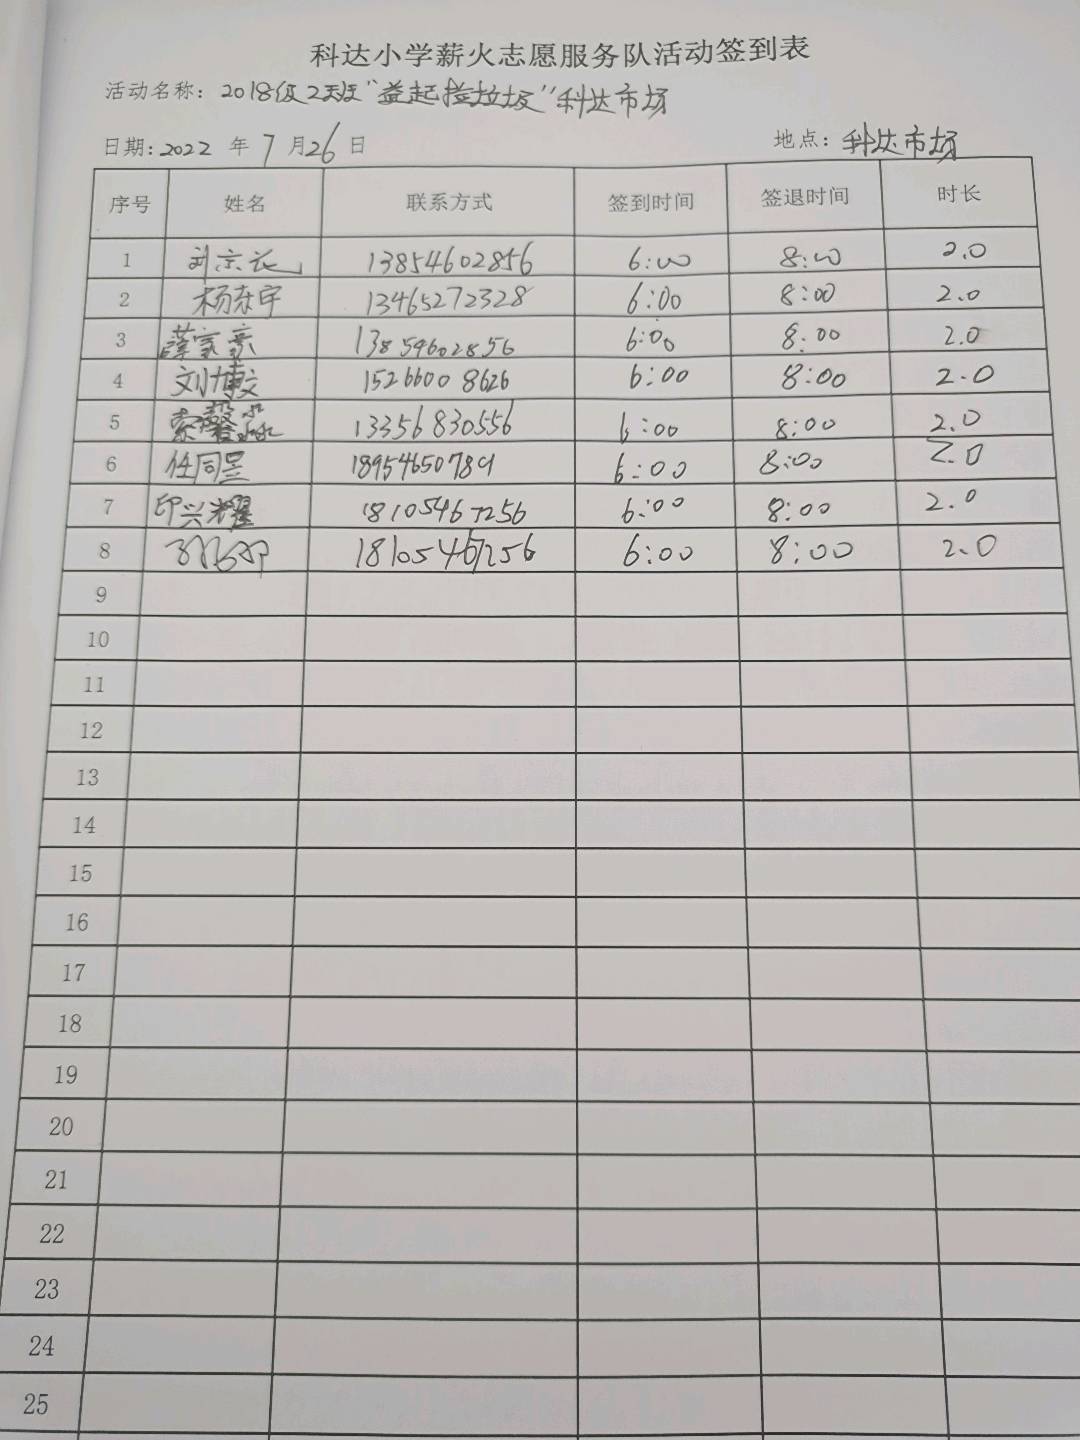 科达小学薪火志愿服务队活动签到表
活动名称：2018级2班"益起捡垃圾"科达市场
日期：2022 年 7 月 26 日 地点：科达市场
序号 姓名 联系方式 签到时间 签退时间 时长
1 刘京 13854602856 6:00 8:00 2.0
2 杨东宇 13465272328 6:00 8:00 2.0
3 薛家豪 13854602856 6:00 8:00 2.0
4 刘博文 15266008626 6:00 8:00 2.0
5 索馨淼 13356830556 6:00 8:00 2.0
6 任同昱 18954650789 6:00 8:00 2.0
7 印兴耀 18105467256 6:00 8:00 2.0
8 18105467256 6:00 8:00 2.0
9
10
11
12
13
14
15
16
17
18
19
20
21
22
23
24
25